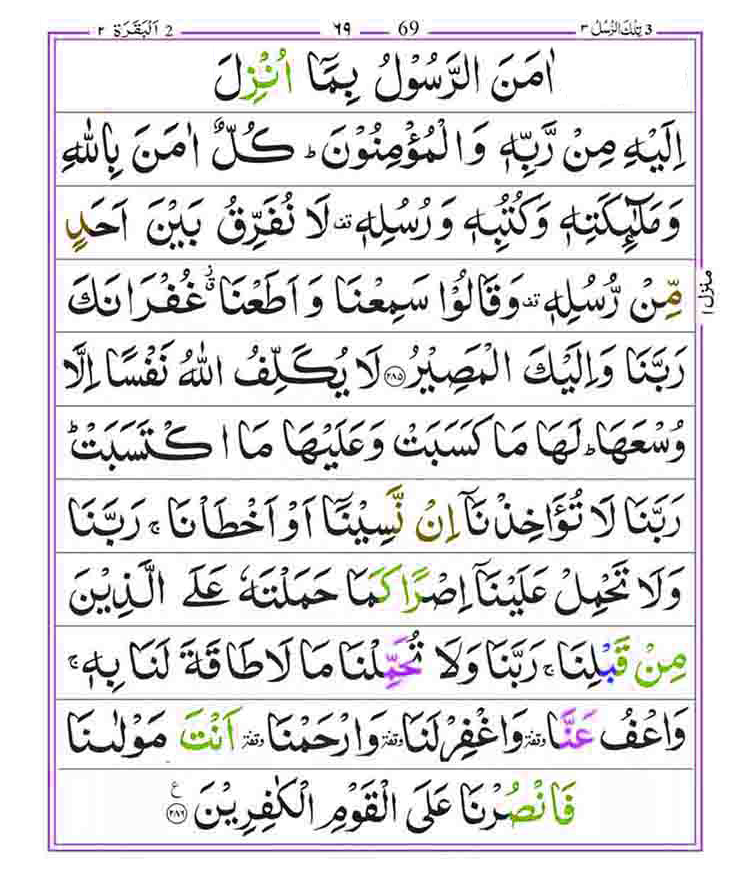 3 تِلْكَ الرُّسُلُ ٣
69 ٦٩
2 اَلْبَقَرَة ٢
اٰمَنَ الرَّسُوْلُ بِمَاۤ اُنْزِلَ
اِلَيْهِ مِنْ رَّبِّهٖ وَالْمُؤْمِنُوْنَ ؕ كُلٌّ اٰمَنَ بِاللّٰهِ
وَمَلٰٓئِكَتِهٖ وَكُتُبِهٖ وَرُسُلِهٖ قف لَا نُفَرِّقُ بَيْنَ اَحَدٍ
مِّنْ رُّسُلِهٖ قف وَقَالُوْا سَمِعْنَا وَاَطَعْنَا غُفْرَانَكَ
رَبَّنَا وَاِلَيْكَ الْمَصِيْرُ ﴿۲۸۵﴾ لَا يُكَلِّفُ اللّٰهُ نَفْسًا اِلَّا
وُسْعَهَا ؕ لَهَا مَا كَسَبَتْ وَعَلَيْهَا مَا اكْتَسَبَتْ ؕ
رَبَّنَا لَا تُؤَاخِذْنَاۤ اِنْ نَّسِيْنَاۤ اَوْ اَخْطَاْنَا ۚ رَبَّنَا
وَلَا تَحْمِلْ عَلَيْنَاۤ اِصْرًا كَمَا حَمَلْتَهٗ عَلَى الَّذِيْنَ
مِنْ قَبْلِنَا ۚ رَبَّنَا وَلَا تُحَمِّلْنَا مَا لَا طَاقَةَ لَنَا بِهٖ ۚ
وَاعْفُ عَنَّا وقفة وَاغْفِرْ لَنَا وقفة وَارْحَمْنَا وقفة اَنْتَ مَوْلٰىنَا
فَانْصُرْنَا عَلَى الْقَوْمِ الْكٰفِرِيْنَ ﴿۲۸۶﴾ ع
منزل ١